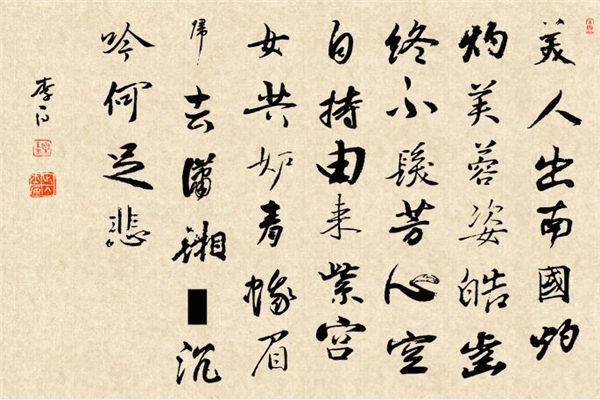 美人出南國灼
灼芙蓉姿皓齒
終不髮芳心空
自持由来紫宫
女共妒青蛾眉
歸去瀟湘沉
吟何足悲
李白